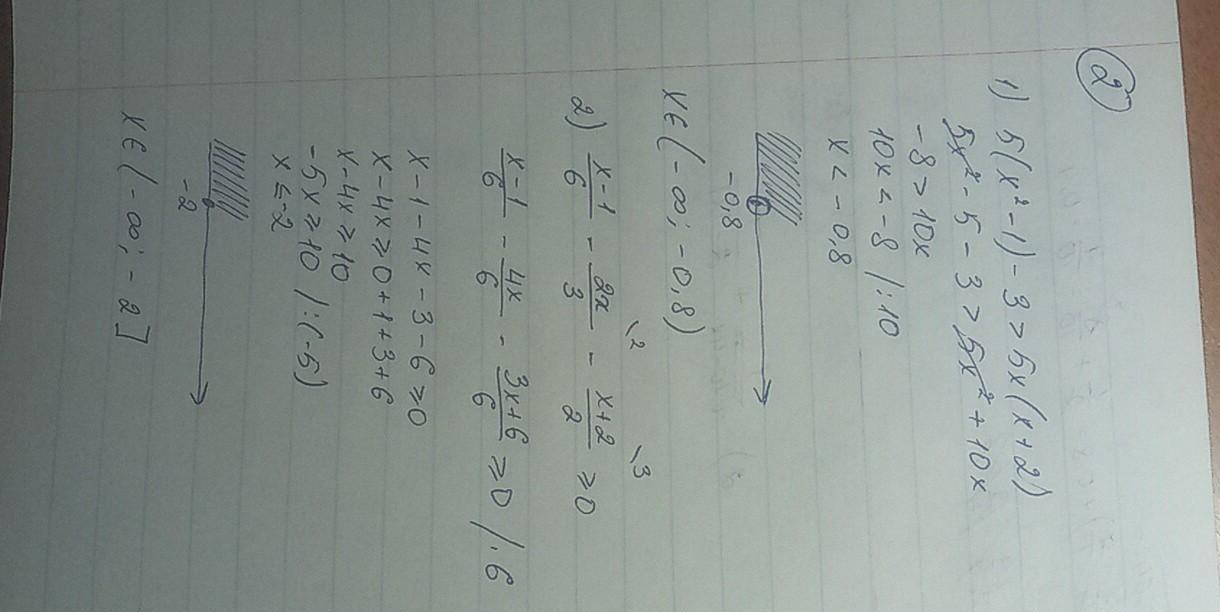 2
1) 5(x²-1)-3>5x(x+2)
5x²-5-3>5x²+10x
-8>10x
10x<-8 /:10
x<-0,8
-0,8
x∈(-∞;-0,8)
2) x-1/6 - 2x/3 \2 - x+2/2 \3 ≥0
x-1/6 - 4x/6 - 3x+6/6 ≥0 /·6
x-1-4x-3-6≥0
x-4x≥0+1+3+6
x-4x≥10
-5x≥10 /:(-5)
x≤-2
-2
x∈(-∞;-2]